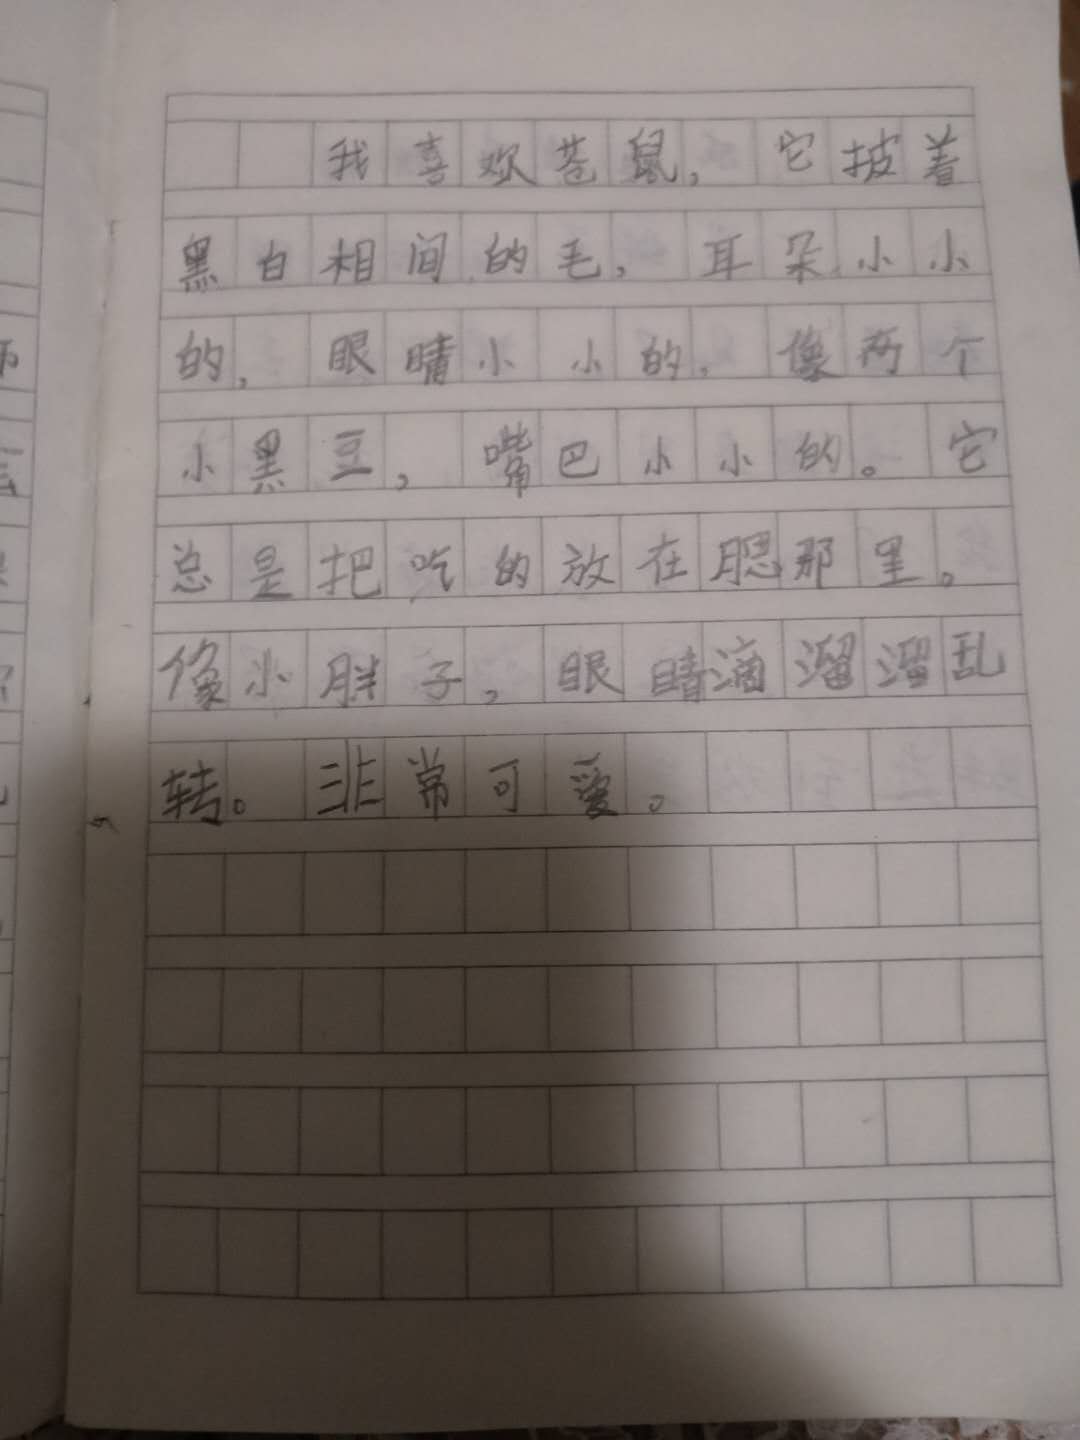 我喜欢苍鼠，它披着
黑白相间的毛，耳朵小小
的，眼睛小小的，像两个
小黑豆，嘴巴小小的。它
总是把吃的放在腮那里。
像小胖子，眼睛滴溜溜乱
转。非常可爱。